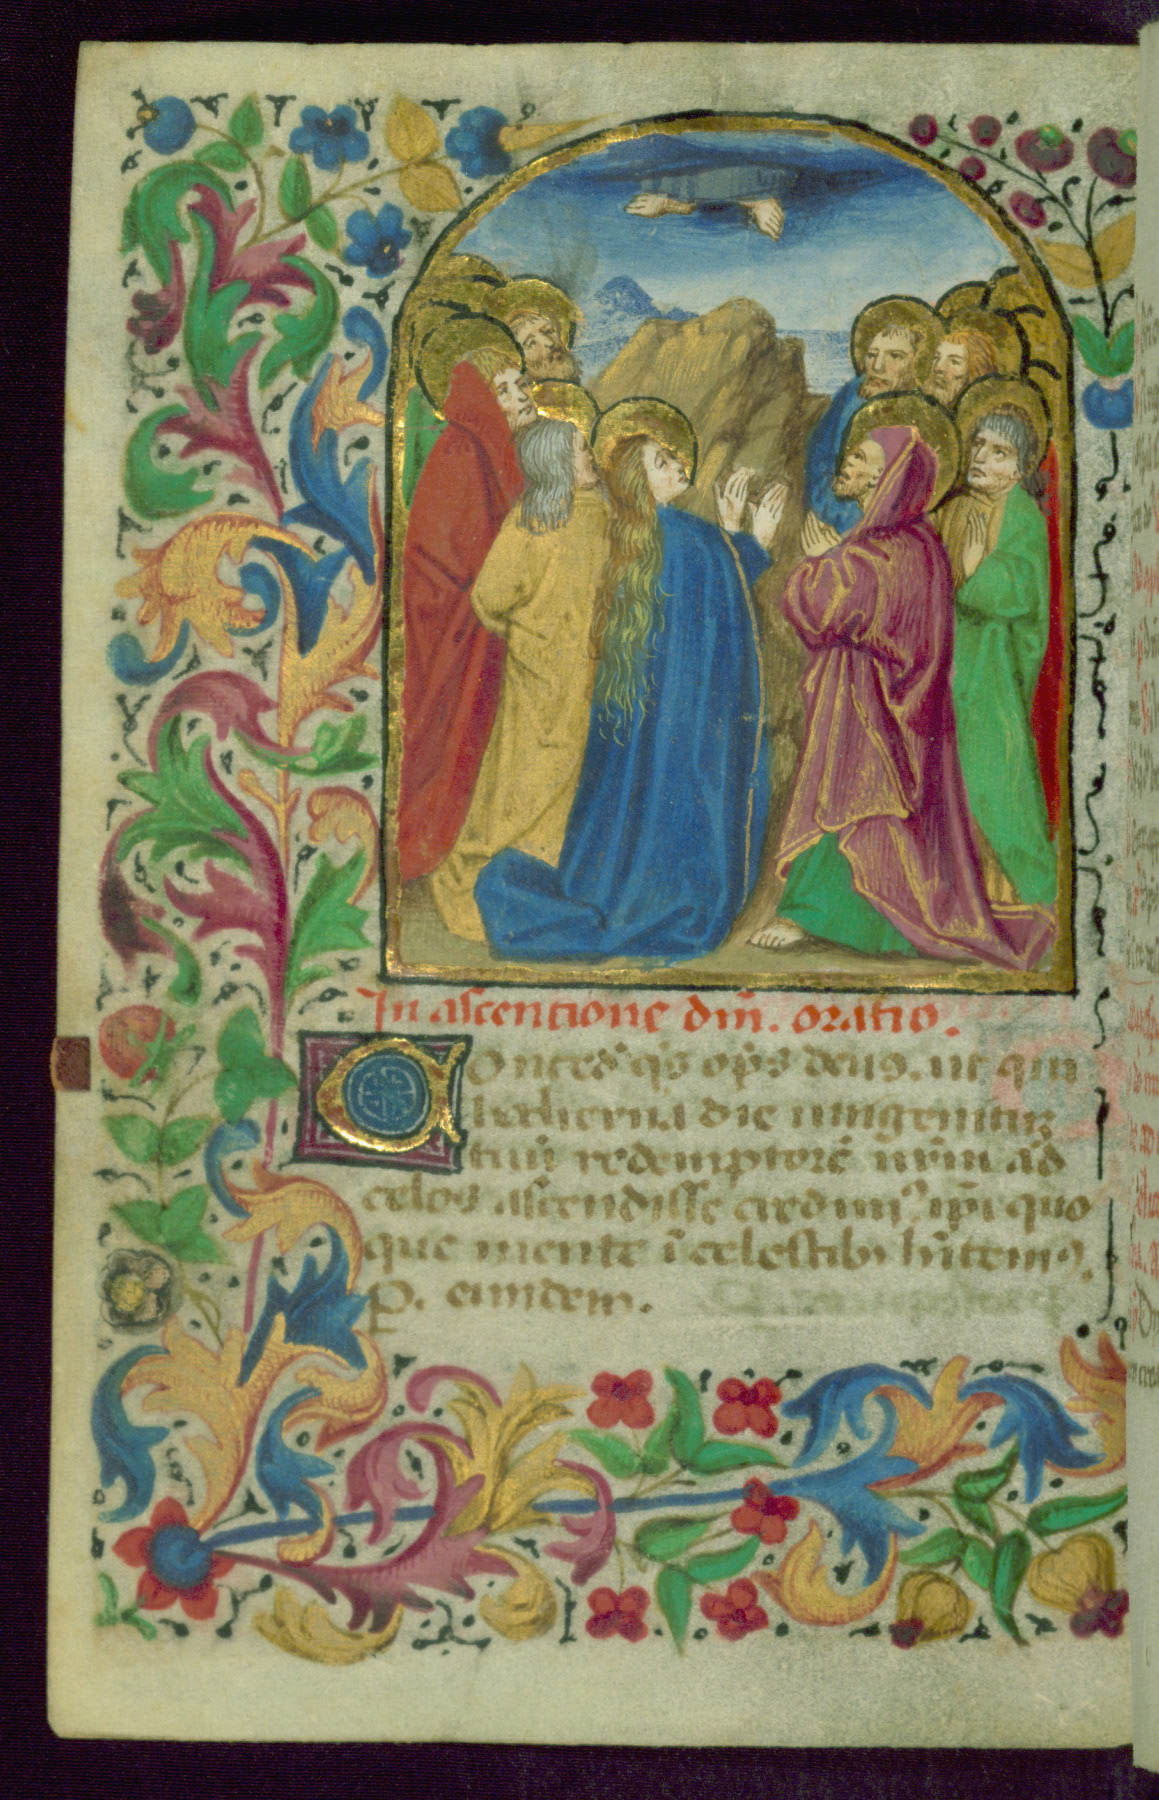 In ascentione dm̄. oratio.
Conced' q̄s op̄s deus. ut qui
hodierna die unigenitum
tuū redemptorē nr̄m ad
celos ascendisse credim'. ip̄i quo
que mente ī celestib; h̄item'.
P. eundem.